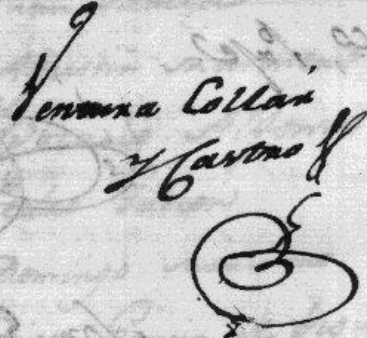 Ventura Collàn
y Castro